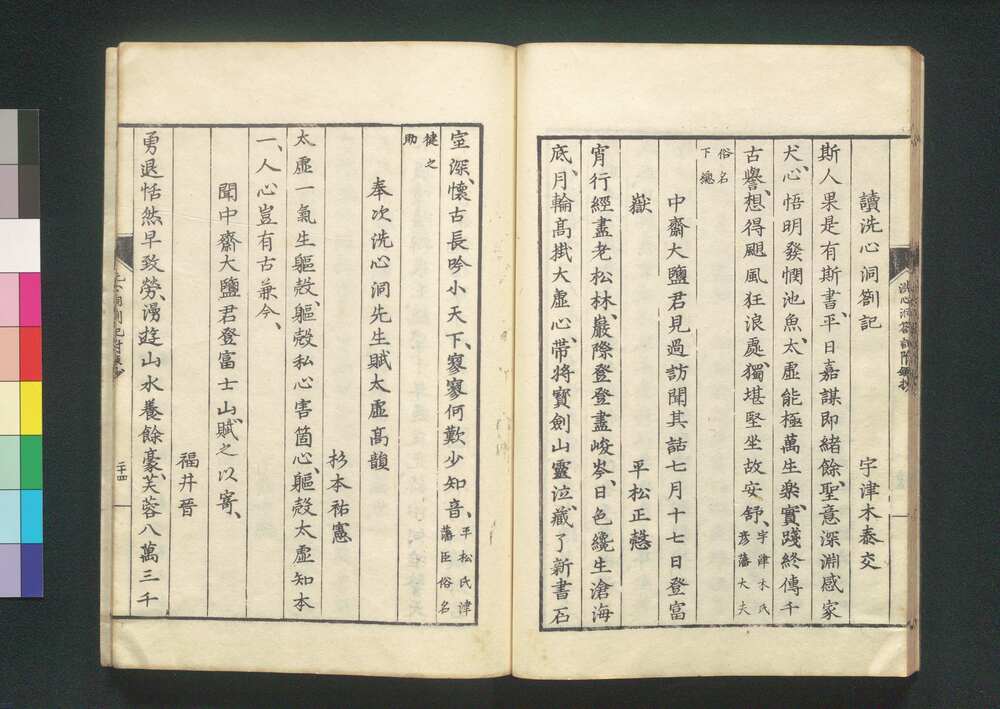 讀洗心洞劄記　宇津木泰交
斯人果是有斯書、平日嘉謀即緒餘、聖意深淵感家
犬、心悟明發憫池魚、太虛能極萬生樂、實踐終傳千
古譽、想得颶風狂浪處、獨堪堅坐故安舒、宇津木氏彥藩大夫
俗名下總
中齋大鹽君見過訪聞其話七月十七日登富
嶽　平松正愨
宵行經盡老松林、巖際登登盡峻岑、日色纔生滄海
底、月輪高掛大虛心、帶將寶劍山靈泣、藏了新書石
室深、懷古長吟小天下、寥寥何歎少知音、平松氏津藩臣俗名
健之助
奉次洗心洞先生賦太虛高韻
杉本祐憲
太虛一氣生軀殼、軀殼私心害箇心、軀殼太虛知本
一、人心豈有古兼今、
聞中齋大鹽君登富士山、賦之以寄、
福井晉
勇退恬然早致勞、漫遊山水養餘豪、芙蓉八萬三千
二十四